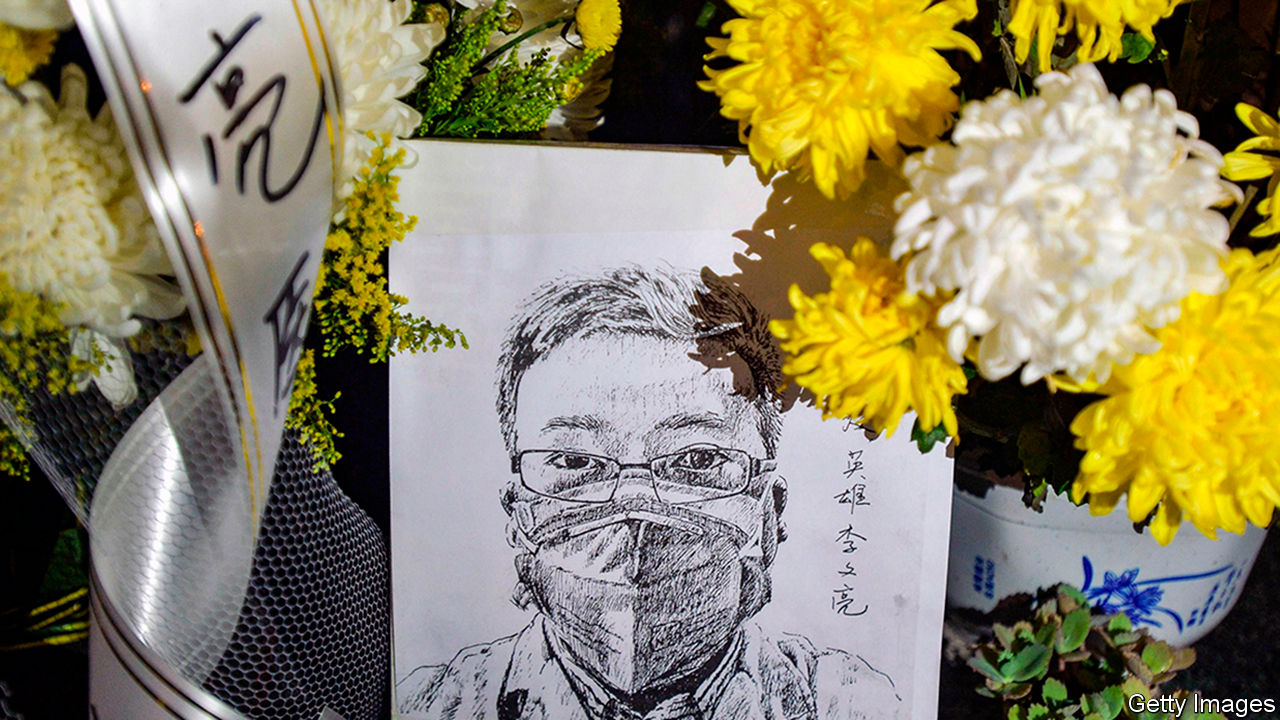 亮
医
英雄李文亮
Getty Images